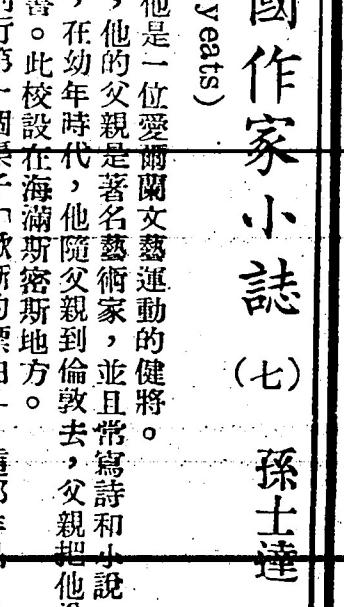 國作家小誌（七） 孫士達
yeats）
他是一位愛爾蘭文藝運動的健將。
，他的父親是著名藝術家，並且常寫詩和小說
，在幼年時代，他隨父親到倫敦去，父親把他
書。此校設在海滿斯密斯地方。
行第一個集子「歐